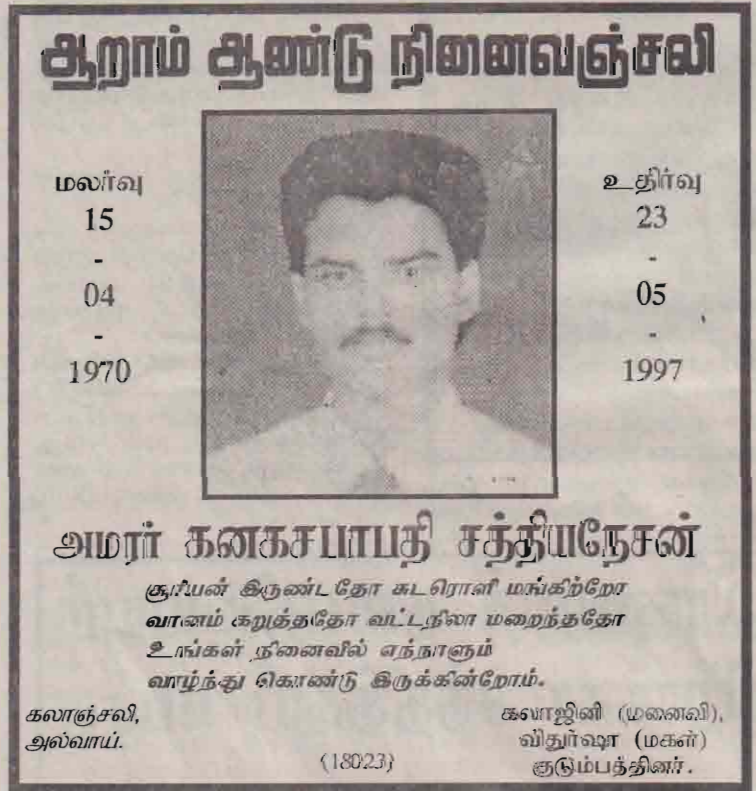 ஆறாம் ஆண்டு நினைவஞ்சலி
மலர்வு
15
-
04
-
1970
உதிர்வு
23
-
05
-
1997
அமரர் கனகசபாபதி சத்தியநேசன்
சூரியன் இருண்டதோ சுடரொளி மங்கிற்றோ
வானம் கறுத்ததோ வட்டநிலா மறைந்ததோ
உங்கள் நினைவில் எந்நாளும்
வாழ்ந்து கொண்டு இருக்கின்றோம்.
கலாஞ்சலி,
அல்வாய்.
(18023)
கலாஜினி (மனைவி),
விதுர்ஷா (மகள்)
குடும்பத்தினர்.